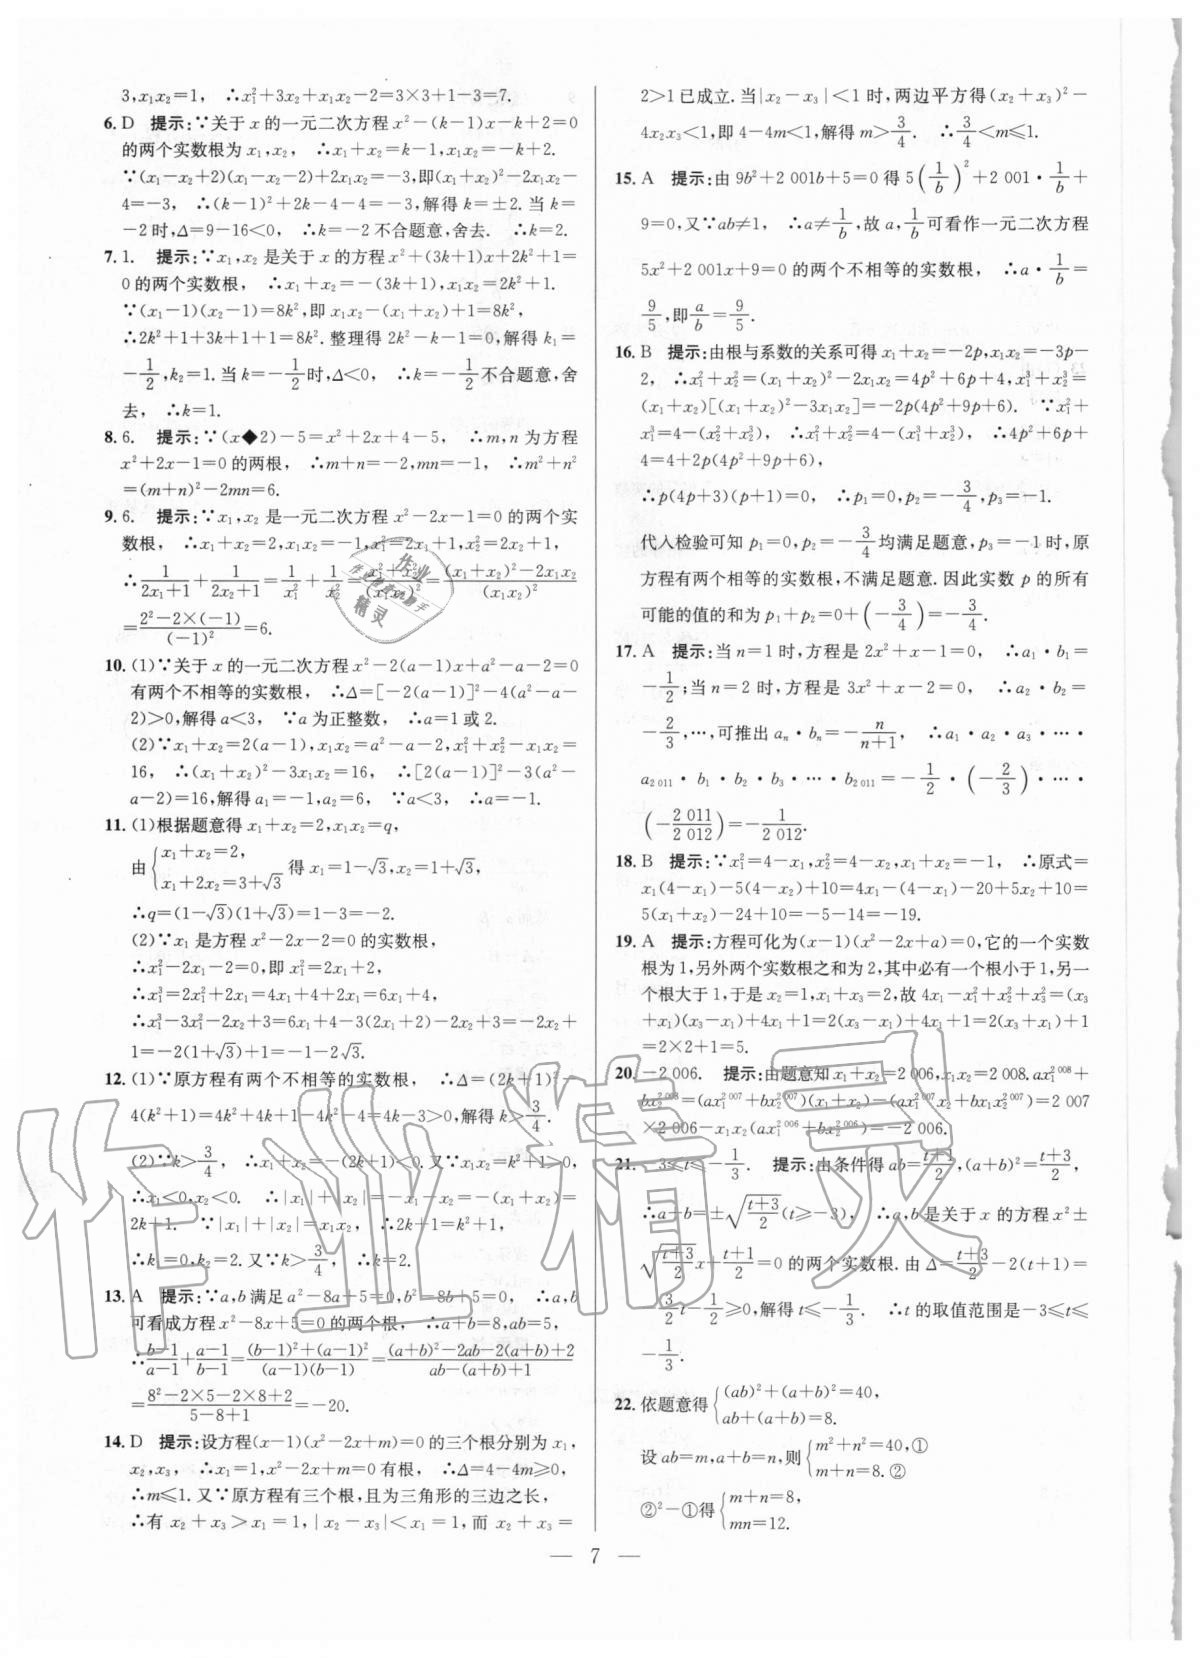 3,x₁x₂=1, ∴x₁²+3x₂+x₁x₂-2=3×3+1-3=7.
6. D 提示:∵关于 x 的一元二次方程 x²-(k-1)x-k+2=0
的两个实数根为 x₁,x₂, ∴x₁+x₂=k-1,x₁x₂=-k+2.
∵(x₁-x₂+2)(x₁-x₂-2)+2x₁x₂=-3,即(x₁+x₂)²-2x₁x₂-
4=-3, ∴(k-1)²+2k-4-4=-3,解得 k=±2. 当 k=
-2 时,Δ=9-16<0, ∴k=-2 不合题意,舍去. ∴k=2.
7. 1. 提示:∵x₁,x₂ 是关于 x 的方程 x²+(3k+1)x+2k²+1=
0 的两个实数根, ∴x₁+x₂=-(3k+1),x₁x₂=2k²+1.
∵(x₁-1)(x₂-1)=8k²,即 x₁x₂-(x₁+x₂)+1=8k²,
∴2k²+1+3k+1+1=8k². 整理得 2k²-k-1=0,解得 k₁=
-1/2,k₂=1. 当 k=-1/2时,Δ<0, ∴k=-1/2不合题意,舍
去, ∴k=1.
8. 6. 提示:∵(x◆2)-5=x²+2x+4-5, ∴m,n 为方程
x²+2x-1=0 的两根, ∴m+n=-2,mn=-1, ∴m²+n²
=(m+n)²-2mn=6.
9. 6. 提示:∵x₁,x₂ 是一元二次方程 x²-2x-1=0 的两个实
数根, ∴x₁+x₂=2,x₁x₂=-1,x₁²=2x₁+1,x₂²=2x₂+1,
∴1/(2x₁+1)+1/(2x₂+1)=1/x₁²+1/x₂²=(x₁²+x₂²)/(x₁x₂)²=((x₁+x₂)²-2x₁x₂)/(x₁x₂)²
=(2²-2×(-1))/(-1)²=6.
10. (1)∵关于 x 的一元二次方程 x²-2(a-1)x+a²-a-2=0
有两个不相等的实数根, ∴Δ=[-2(a-1)]²-4(a²-a-
2)>0,解得 a<3, ∵a 为正整数, ∴a=1 或 2.
(2)∵x₁+x₂=2(a-1),x₁x₂=a²-a-2,x₁²+x₂²-x₁x₂=
16, ∴(x₁+x₂)²-3x₁x₂=16, ∴[2(a-1)]²-3(a²-
a-2)=16,解得 a₁=-1,a₂=6, ∵a<3, ∴a=-1.
11. (1)根据题意得 x₁+x₂=2,x₁x₂=q,
由{x₁+x₂=2, x₁+2x₂=3+√3 得 x₁=1-√3,x₂=1+√3,
∴q=(1-√3)(1+√3)=1-3=-2.
(2)∵x₁ 是方程 x²-2x-2=0 的实数根,
∴x₁²-2x₁-2=0,即 x₁²=2x₁+2,
∴x₁³=2x₁²+2x₁=4x₁+4+2x₁=6x₁+4,
∴x₁³-3x₁²-2x₂+3=6x₁+4-3(2x₁+2)-2x₂+3=-2x₂+
1=-2(1+√3)+1=-1-2√3.
12. (1)∵原方程有两个不相等的实数根, ∴Δ=(2k+1)²-
4(k²+1)=4k²+4k+1-4k²-4=4k-3>0,解得 k>3/4.
(2)∵k>3/4, ∴x₁+x₂=-(2k+1)<0. 又∵x₁x₂=k²+1>0,
∴x₁<0,x₂<0. ∴|x₁|+|x₂|=-x₁-x₂=-(x₁+x₂)=
2k+1. ∵|x₁|+|x₂|=x₁x₂, ∴2k+1=k²+1,
∴k₁=0,k₂=2. 又∵k>3/4, ∴k=2.
13. A 提示:∵a,b 满足 a²-8a+5=0,b²-8b+5=0, ∴a,b
可看成方程 x²-8x+5=0 的两个根, ∴a+b=8,ab=5,
∴(b-1)/(a-1)+(a-1)/(b-1)=((b-1)²+(a-1)²)/((a-1)(b-1))=((a+b)²-2ab-2(a+b)+2)/(ab-(a+b)+1)
=(8²-2×5-2×8+2)/(5-8+1)=-20.
14. D 提示:设方程(x-1)(x²-2x+m)=0 的三个根分别为 x₁,
x₂,x₃, ∴x₁=1,x²-2x+m=0 有根, ∴Δ=4-4m≥0,
∴m≤1. 又∵原方程有三个根,且为三角形的三边之长,
∴有 x₂+x₃>x₁=1,|x₂-x₃|<x₁=1,而 x₂+x₃=
2>1 已成立. 当|x₂-x₃|<1 时,两边平方得(x₂+x₃)²-
4x₂x₃<1,即 4-4m<1,解得 m>3/4. ∴3/4<m≤1.
15. A 提示:由 9b²+2 001b+5=0 得 5(1/b)²+2 001·1/b+
9=0,又∵ab≠1, ∴a≠1/b,故 a,1/b可看作一元二次方程
5x²+2 001x+9=0 的两个不相等的实数根, ∴a·1/b=
9/5,即a/b=9/5.
16. B 提示:由根与系数的关系可得 x₁+x₂=-2p,x₁x₂=-3p-
2, ∴x₁²+x₂²=(x₁+x₂)²-2x₁x₂=4p²+6p+4,x₁³+x₂³=
(x₁+x₂)[(x₁+x₂)²-3x₁x₂]=-2p(4p²+9p+6). ∵x₁²+
x₁³=4-(x₂²+x₂³), ∴x₁²+x₂²=4-(x₁³+x₂³), ∴4p²+6p+
4=4+2p(4p²+9p+6),
∴p(4p+3)(p+1)=0, ∴p₁=0,p₂=-3/4,p₃=-1.
代入检验可知 p₁=0,p₂=-3/4均满足题意,p₃=-1 时,原
方程有两个相等的实数根,不满足题意. 因此实数 p 的所有
可能的值的和为 p₁+p₂=0+(-3/4)=-3/4.
17. A 提示:当 n=1 时,方程是 2x²+x-1=0, ∴a₁·b₁=
-1/2;当 n=2 时,方程是 3x²+x-2=0, ∴a₂·b₂=
-2/3,…,可推出 aₙ·bₙ=-n/(n+1), ∴a₁·a₂·a₃·…·
a₂ ₀₁₁·b₁·b₂·b₃·…·b₂ ₀₁₁=-1/2·(-2/3)·…·
(-2 011/2 012)=-1/2 012.
18. B 提示:∵x₁²=4-x₁,x₂²=4-x₂,x₁+x₂=-1, ∴原式=
x₁(4-x₁)-5(4-x₂)+10=4x₁-(4-x₁)-20+5x₂+10=
5(x₁+x₂)-24+10=-5-14=-19.
19. A 提示:方程可化为(x-1)(x²-2x+a)=0,它的一个实数
根为 1,另外两个实数根之和为 2,其中必有一个根小于 1,另一
个根大于 1,于是 x₂=1,x₁+x₃=2,故 4x₁-x₁²+x₂²+x₃²=(x₃
+x₁)(x₃-x₁)+4x₁+1=2(x₃-x₁)+4x₁+1=2(x₃+x₁)+1
=2×2+1=5.
20. -2 006. 提示:由题意知 x₁+x₂=2 006,x₁x₂=2 008. ax₁² ⁰⁰⁸+
bx₂² ⁰⁰⁸=(ax₁² ⁰⁰⁷+bx₂² ⁰⁰⁷)(x₁+x₂)-(ax₁² ⁰⁰⁷x₂+bx₁x₂² ⁰⁰⁷)=2 007
×2 006-x₁x₂(ax₁² ⁰⁰⁶+bx₂² ⁰⁰⁶)=-2 006.
21. -3≤t≤-1/3. 提示:由条件得 ab=(t+1)/2,(a+b)²=(t+3)/2,
∴a+b=±√((t+3)/2)(t≥-3), ∴a,b 是关于 x 的方程 x²±
√((t+3)/2)x+(t+1)/2=0 的两个实数根. 由 Δ=(t+3)/2-2(t+1)=
-3/2t-1/2≥0,解得 t≤-1/3. ∴t 的取值范围是-3≤t≤
-1/3.
22. 依题意得{(ab)²+(a+b)²=40, ab+(a+b)=8.
设 ab=m,a+b=n,则{m²+n²=40,① m+n=8.②
②²-①得{m+n=8, mn=12.
— 7 —
作业精灵